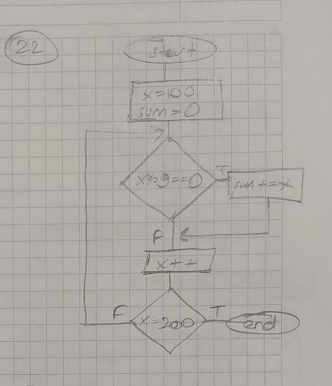 22
start
x=100
sum=0
x%9==0
T
sum+=x
F
x++
F
x=200
T
end